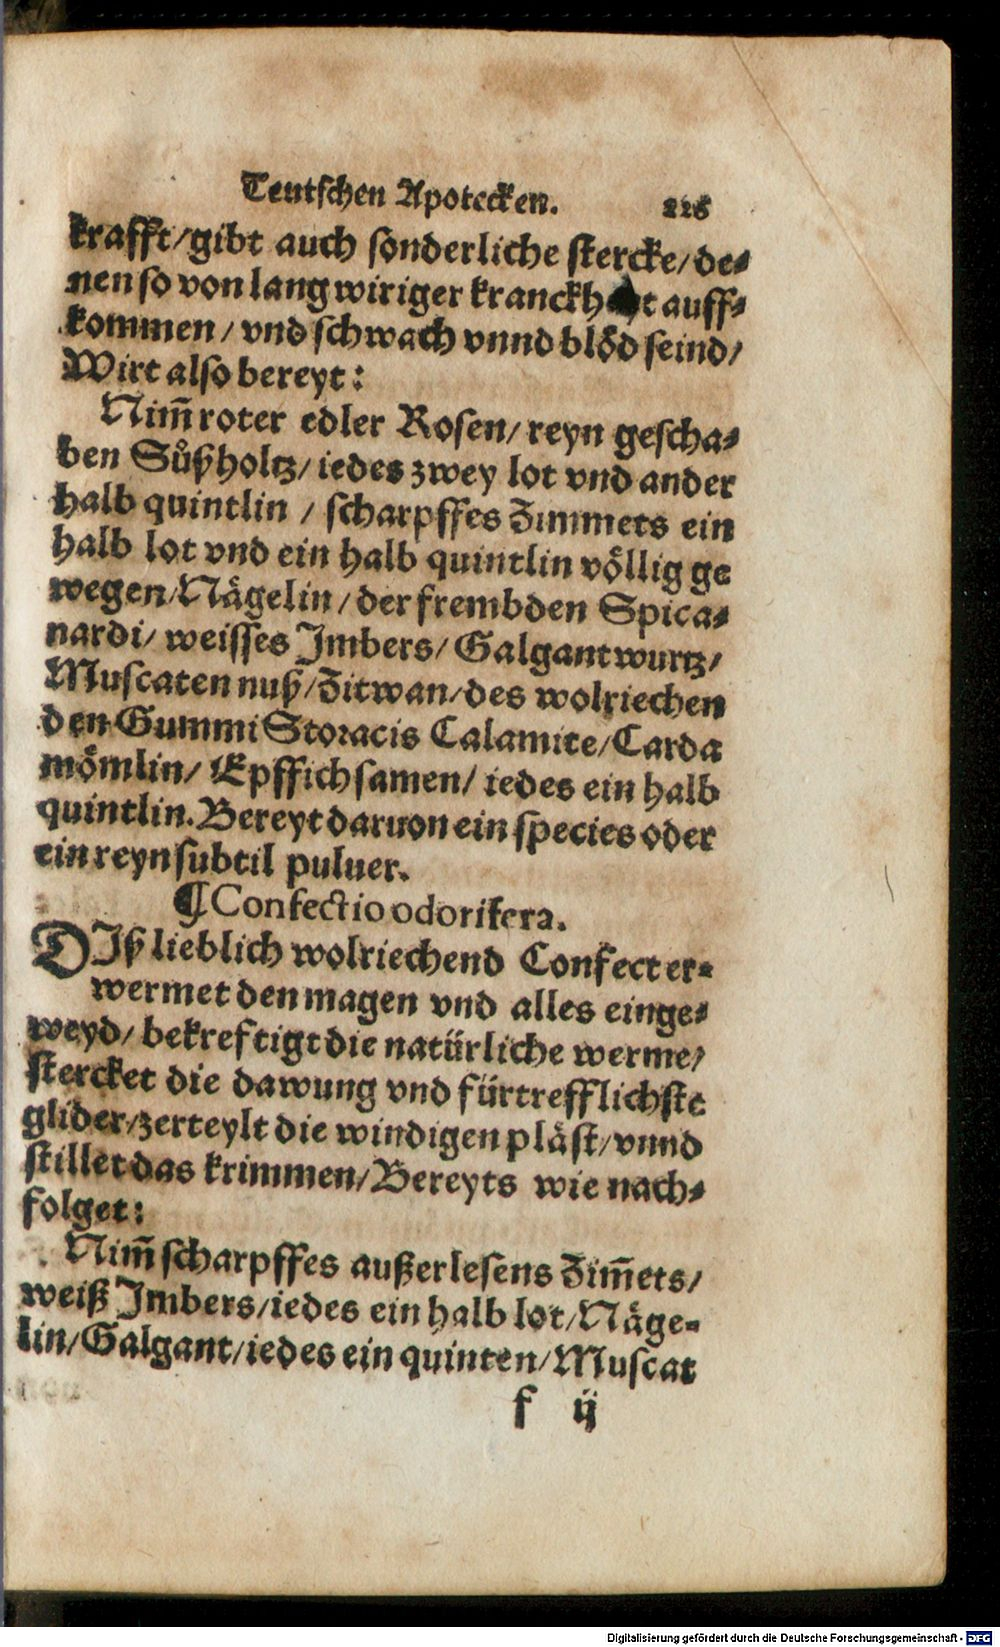 Teutschen Apotecken. 226
krafft/gibt auch sonderliche stercke/de⸗
nen so von langwiriger kranckh t auff⸗
kommen/ vnd schwach vnnd blöd seind/
Wirt also bereyt:
Nim̃ roter edler Rosen/ reyn gescha⸗
ben Sůßholtz/ iedes zwey lot vnd ander
halb quintlin / scharpffes Zimmets ein
halb lot vnd ein halb quintlin völlig ge
wegen/Nägelin/der frembden Spica⸗
nardi/ weisses Jmbers/ Galgantwurtz/
Muscatennuß/Zitwan/des wolriechen
den Gummi Storacis Calamite/Carda
mömlin/ Epffichsamen/ iedes ein halb
quintlin. Bereyt daruon ein species oder
ein reyn subtil puluer.
¶Confectio odorifera.
DJß lieblich wolriechend Confect er⸗
wermet den magen vnd alles einge⸗
weyd/ bekreftigt die natürliche werme/
stercket die dawung vnd fürtrefflichste
glider/zerteylt die windigen pläst/vnnd
stillet das krimmen/Bereyts wie nach⸗
folget:
Nim̃ scharpffes außerlesens Zim̃ets/
weiß Jmbers/iedes ein halb lot/Näge⸗
lin/Galgant/iedes ein quinten/Muscat
f ij
Digitalisierung gefördert durch die Deutsche Forschungsgemeinschaft - DFG